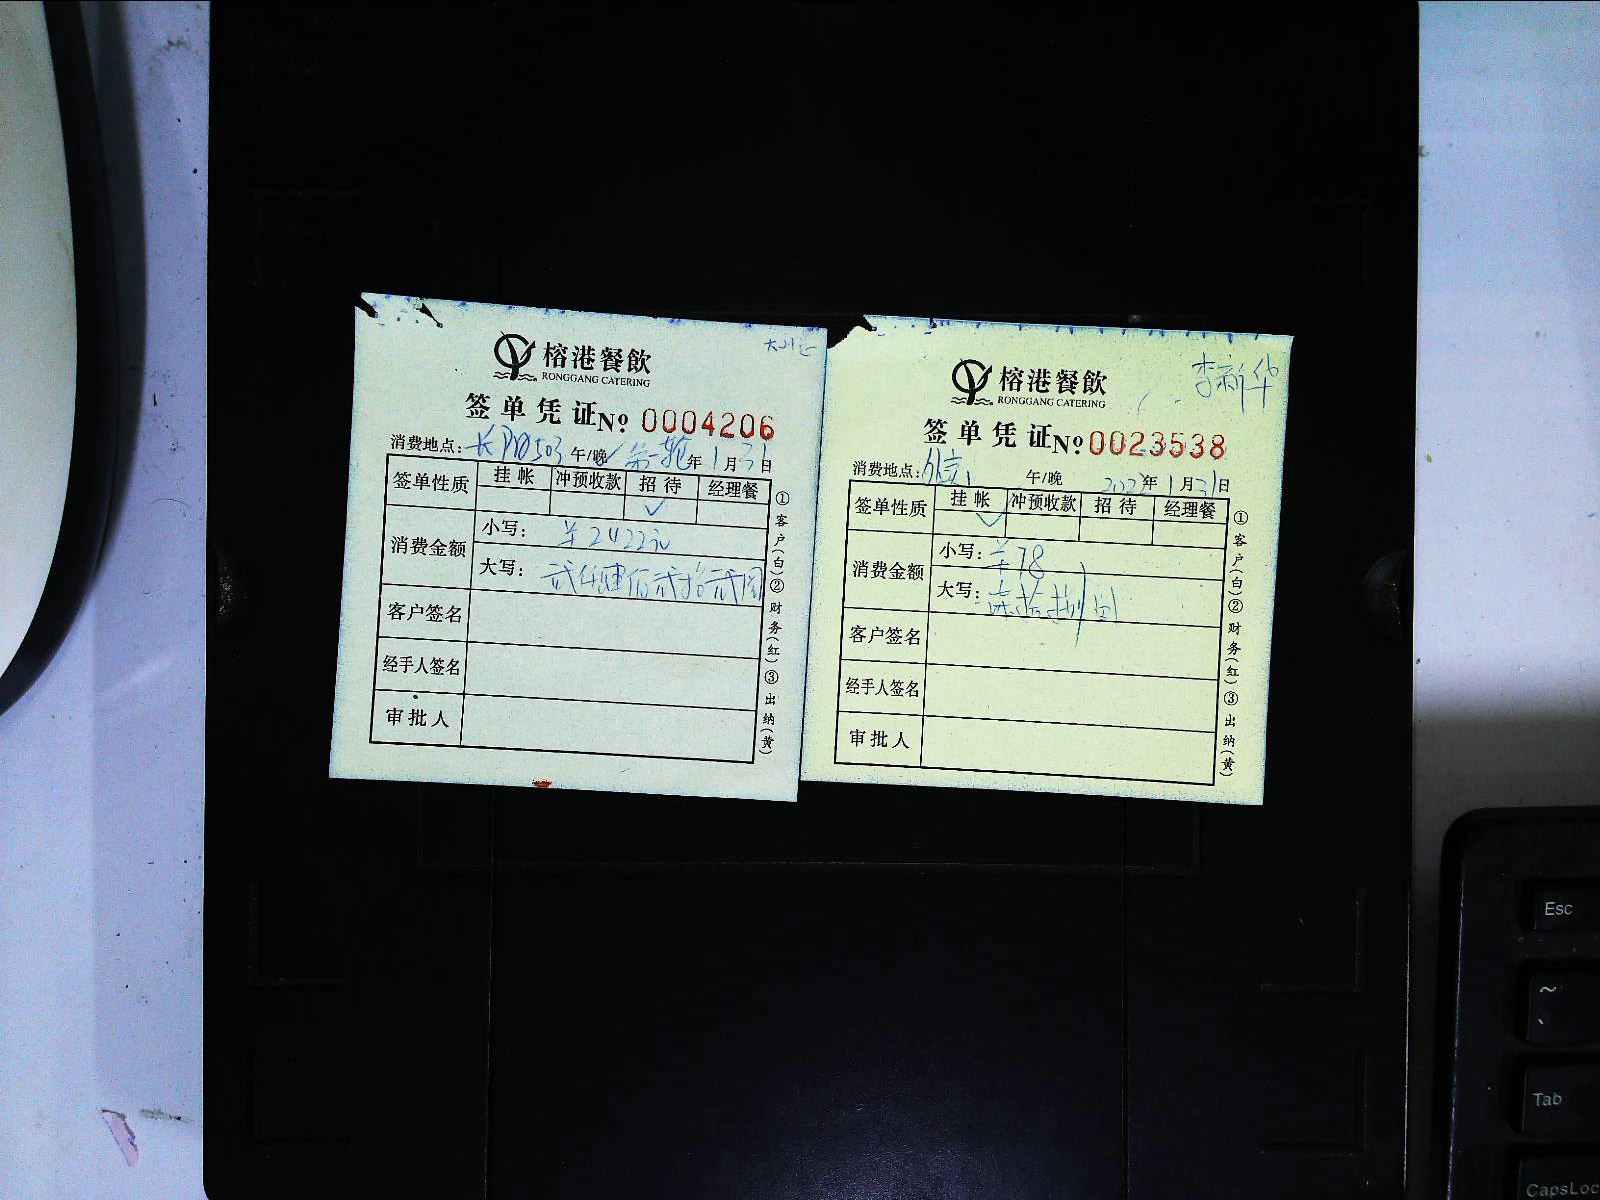 榕港餐飲
RONGGANG CATERING
签单凭证 № 0004206
消费地点: 503 午/晚 年 1 月 31 日
签单性质 挂帐 冲预收款 招待 经理餐
✓
消费金额
小写: ¥2422元
大写: 贰仟肆佰贰拾贰圆
客户签名
经手人签名
审批人
①客户(白)②财务(红)③出纳(黄)
李新华
榕港餐飲
RONGGANG CATERING
签单凭证 № 0023538
消费地点: 午/晚 2022 年 1 月 31 日
签单性质 挂帐 冲预收款 招待 经理餐
✓
消费金额
小写: ¥78
大写: 柒拾捌圆
客户签名
经手人签名
审批人
①客户(白)②财务(红)③出纳(黄)
Esc
~
`
Tab
CapsLoc